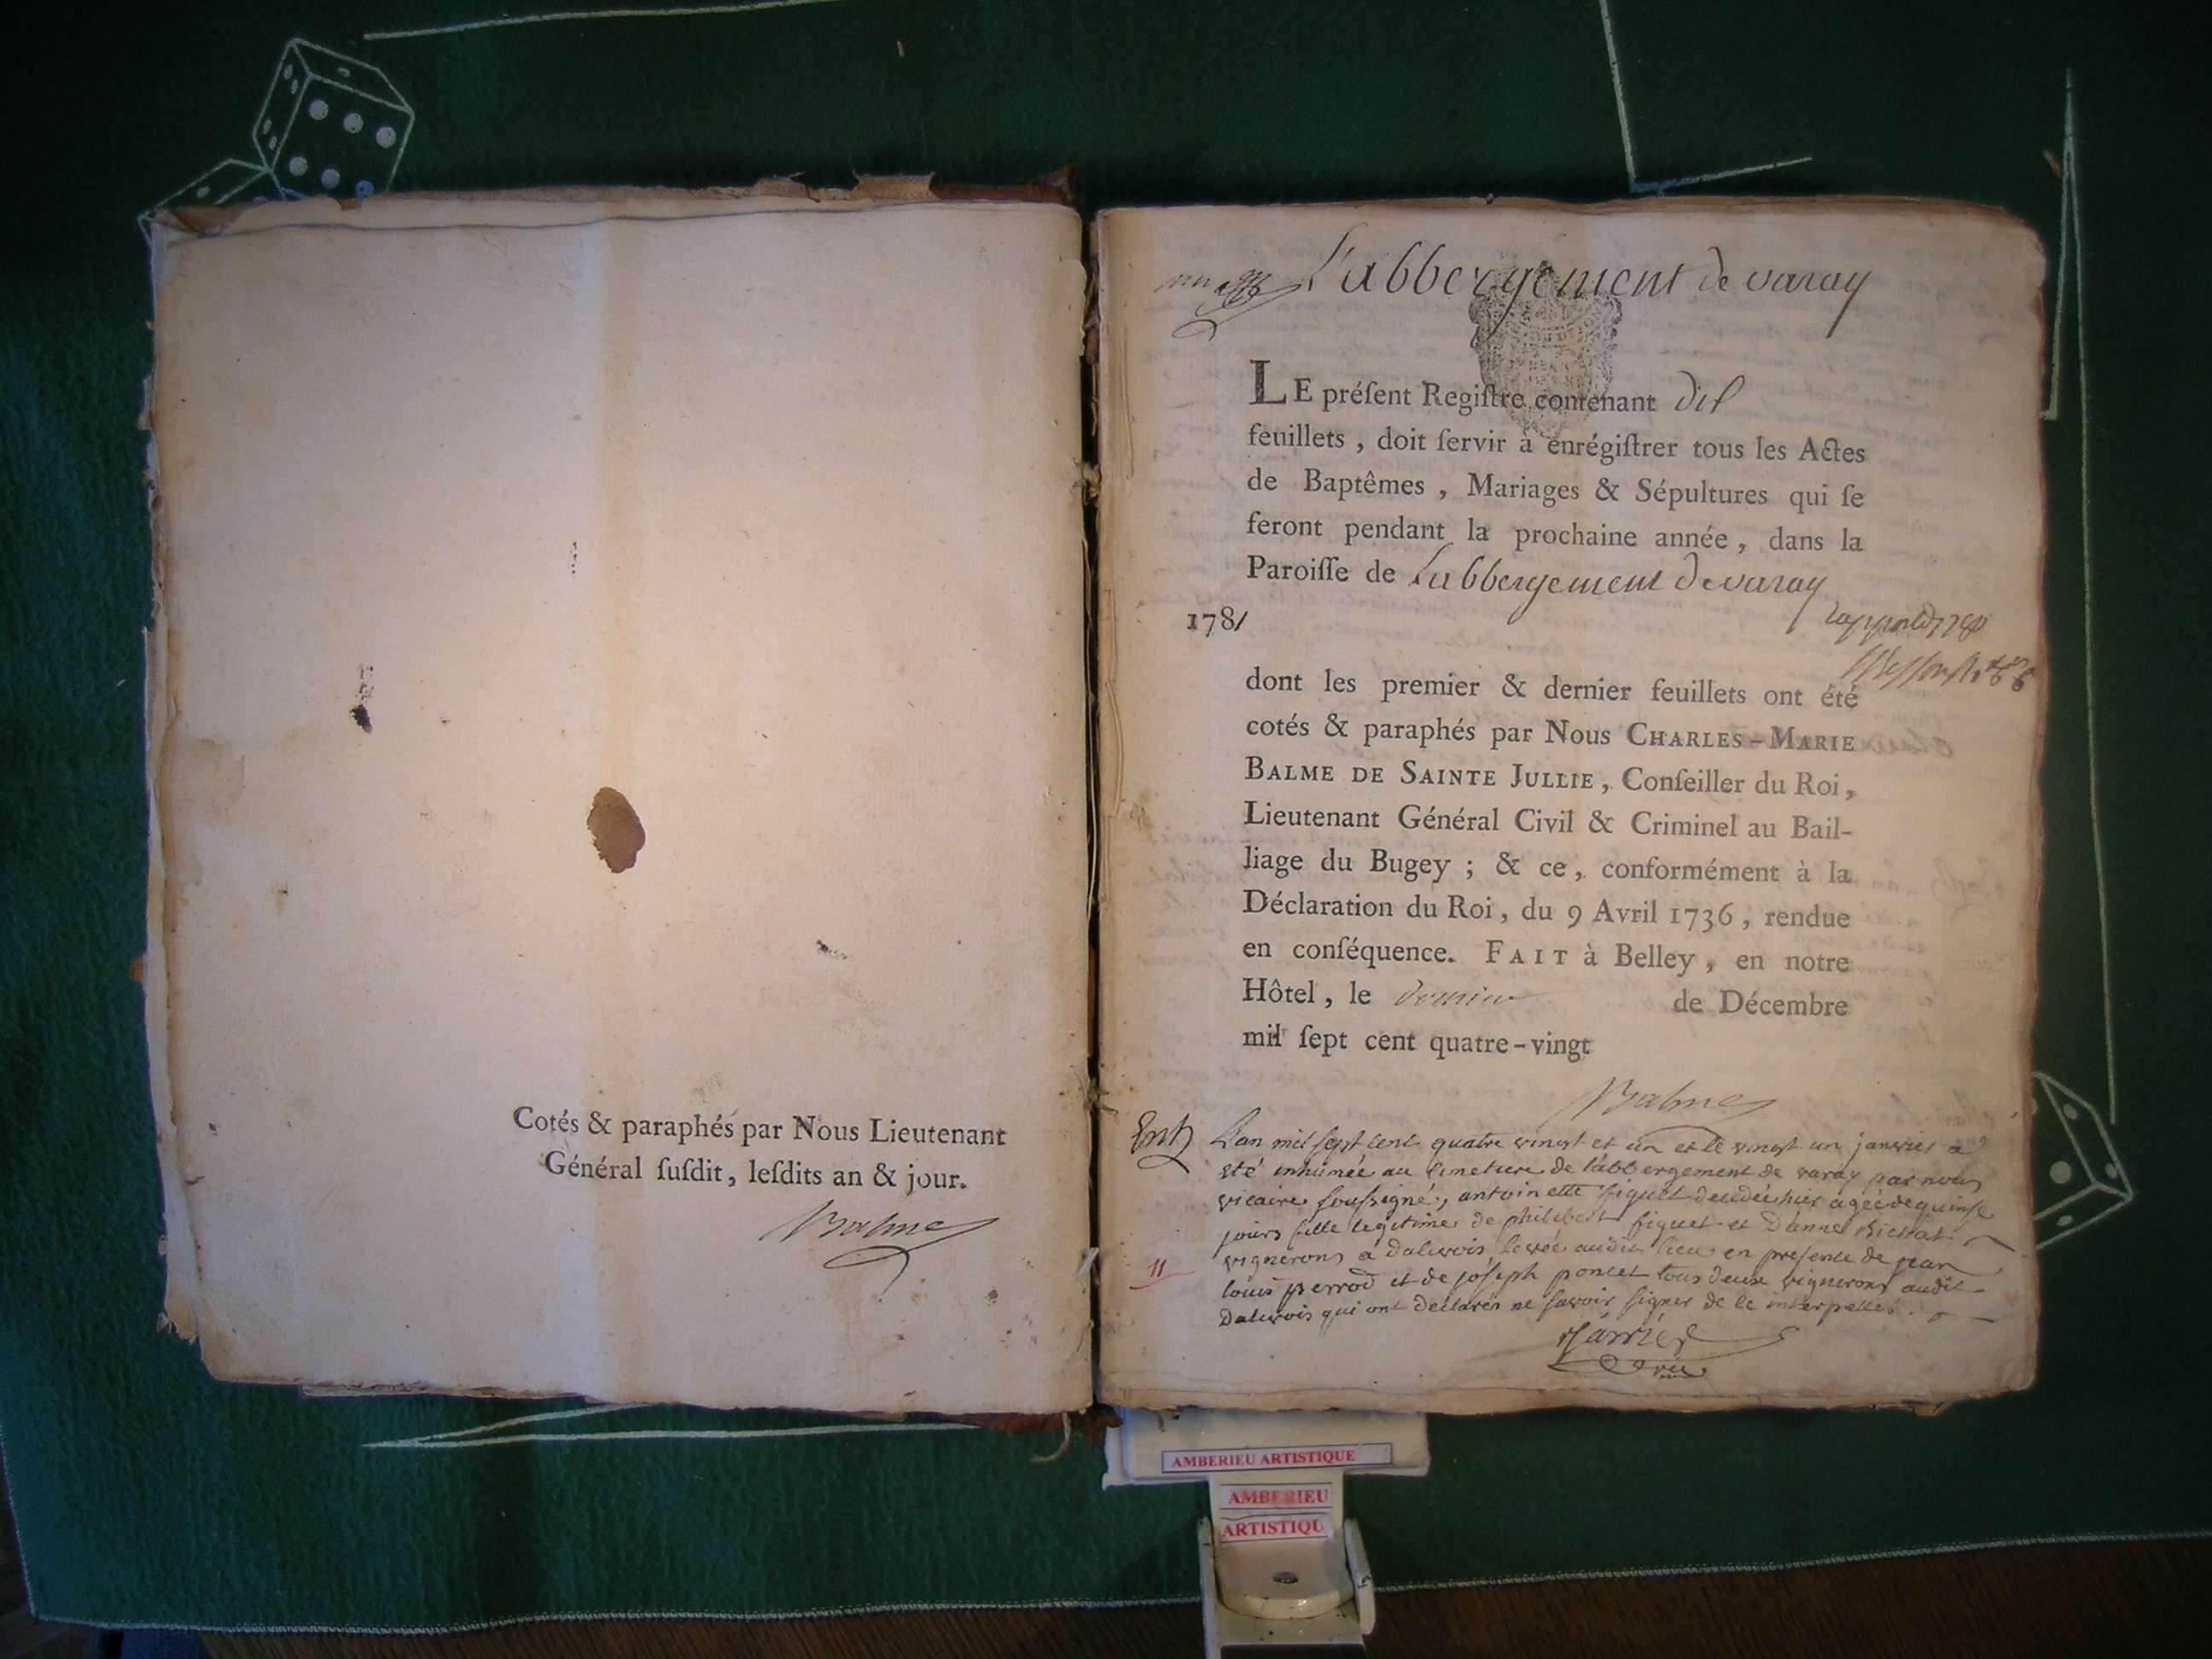 Cotés & paraphés par Nous Lieutenant
Général ſuſdit, leſdits an & jour.
Balme
L'abbergement de varay
LE préſent Regiſtre contenant dix
feuillets, doit ſervir à enrégiſtrer tous les Actes
de Baptêmes, Mariages & Sépultures qui ſe
feront pendant la prochaine année, dans la
Paroiſſe de L'abbergement de varay
1781
dont les premier & dernier feuillets ont été
cotés & paraphés par Nous CHARLES-MARIE
BALME DE SAINTE JULLIE, Conſeiller du Roi,
Lieutenant Général Civil & Criminel au Bail-
liage du Bugey; & ce, conformément à la
Déclaration du Roi, du 9 Avril 1736, rendue
en conſéquence. FAIT à Belley, en notre
Hôtel, le dernier de Décembre
mil ſept cent quatre-vingt
Balme
Ent L'an mil sept cent quatre vingt et un et le vingt un janvier a
été inhumée au cimetiere de l'abbergement de varay par nous
vicaire soussigné, antoinette figuet decedée hier agée de quinse
jours fille legitime de philibert figuet et D'anne Bichat
vignerons a Dalivois levée audit lieu en presence de jean
11
louis perrod et de joseph poncet tous deux vignerons audit
Dalivois qui ont declarés ne savoir signer de ce interpellés.